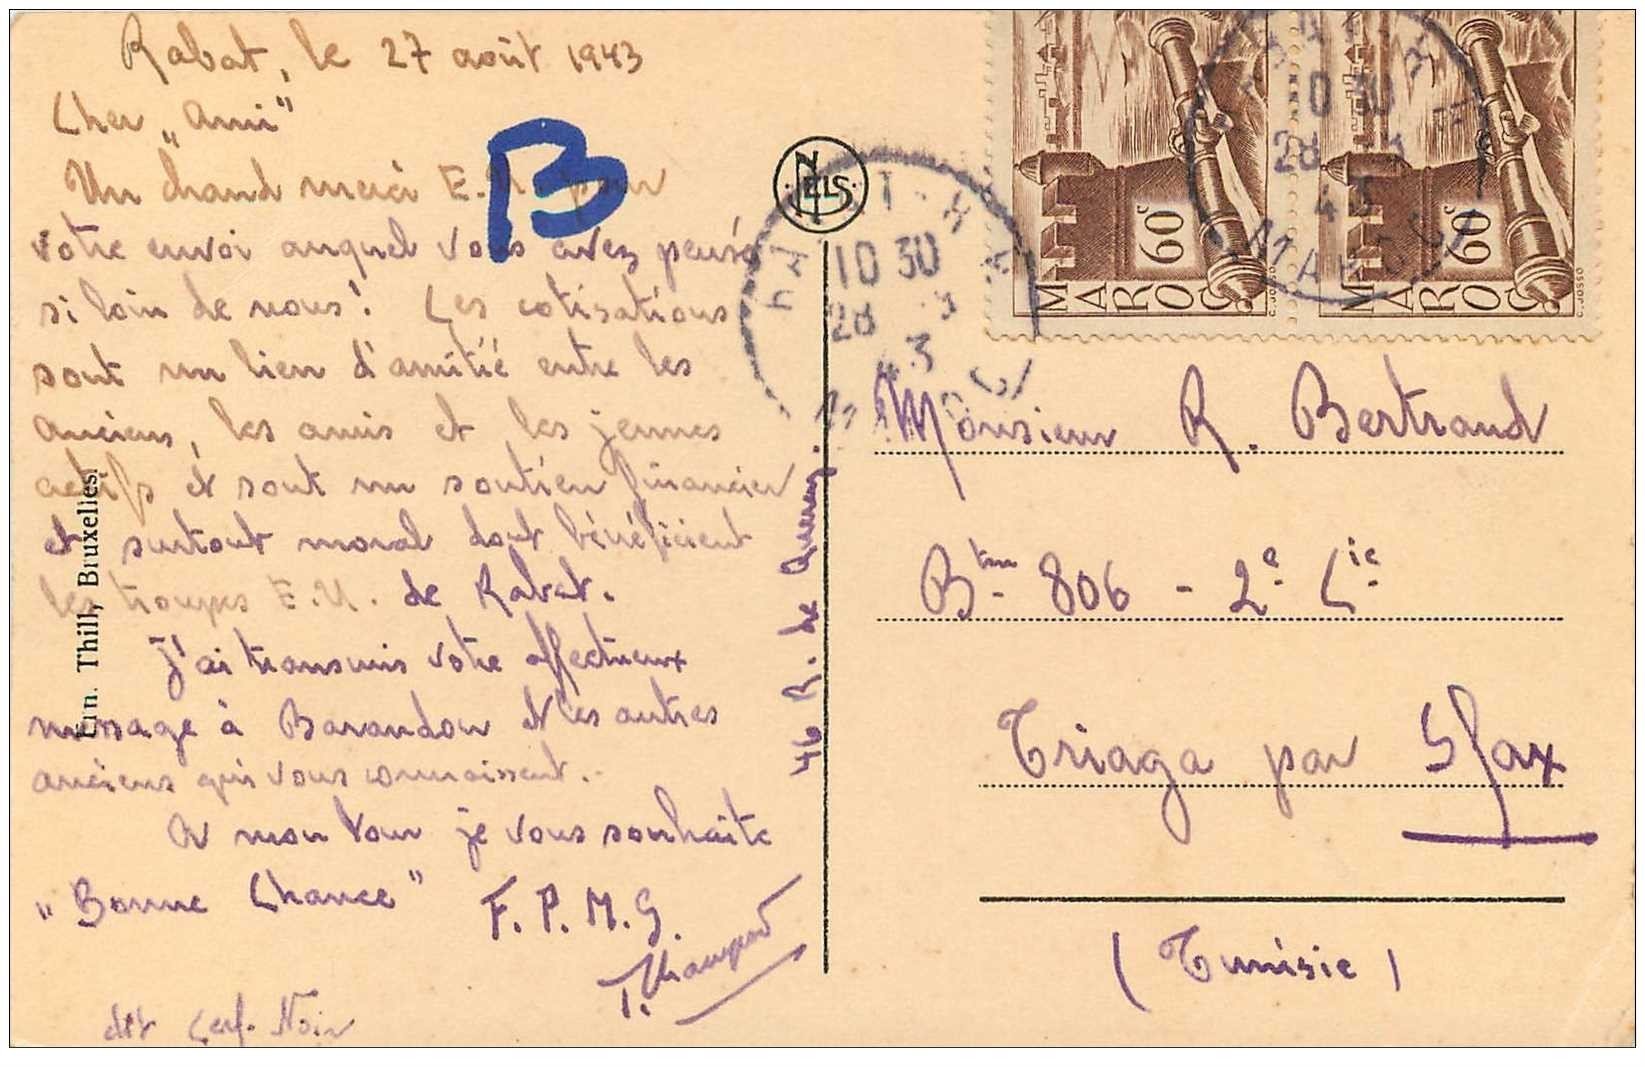 Rabat, le 27 août 1943
Cher „Ami"
Un chaud merci E.
votre envoi auquel vous avez pensé
si loin de nous! Les cotisations
sont un lien d'amitié entre les
anciens, les amis et les jeunes
actifs et sont un soutien financier
et surtout moral dont bénéficient
les troupes E.U. de Rabat.
J'ai transmis votre affectueux
message à Barandon et les autres
anciens qui vous connaissent.
A mon tour je vous souhaite
„Bonne Chance" F.P.M.G.
dit Cerf-Noir
B
Ern. Thill, Bruxelles.
NELS
46 R. de
10 30
28
43
MAROC
10 30
28
43
MAROC
MAROC
60c
C. JOSSO
MAROC
60c
C. JOSSO
Monsieur R. Bertrand
Btm 806 - 2e Cie
Triaga par Sfax
(Tunisie)